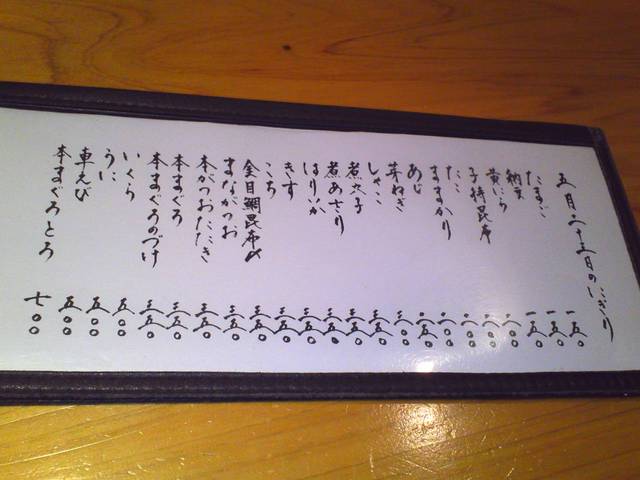 五月二十五日のにぎり
たまご 一五〇
納豆 一五〇
黄にら 一五〇
子持昆布 二〇〇
たこ 二〇〇
ままかり 二〇〇
あじ 二〇〇
芽ねぎ 二五〇
しゃこ 三〇〇
煮穴子 三五〇
煮あさり 三五〇
はりいか 三五〇
きす 三五〇
こち 三五〇
金目鯛昆布〆 三五〇
まながつお 三五〇
本がつおたたき 三五〇
本まぐろ 三五〇
本まぐろのづけ 三五〇
いくら 五〇〇
うに 五〇〇
車えび 五〇〇
本まぐろとろ 七〇〇